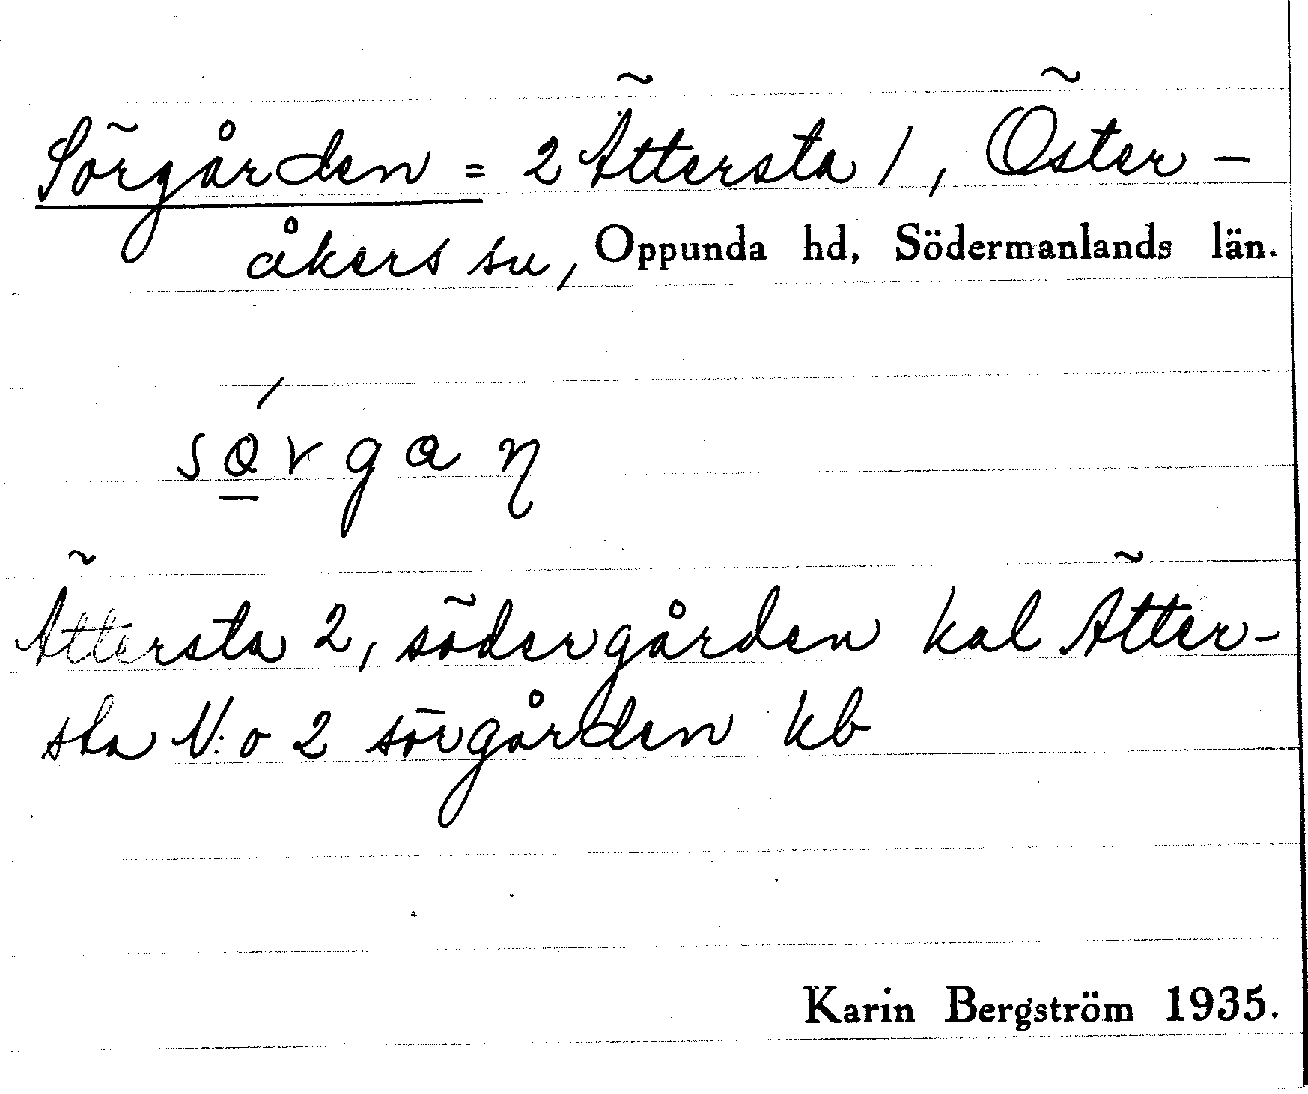 Sörgården = 2 Ättersta /, Öster-
åkers sn, Oppunda hd, Södermanlands län.
sørgaɳ
Ättersta 2, södergården kal Ätter-
sta N:o 2 sörgården kb
Karin Bergström 1935.